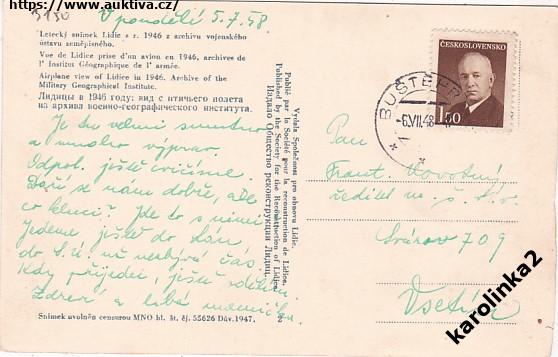 https://www.auktiva.cz/
V pondělí 5.7.48
Letecký snímek Lidic z r. 1946 z archivu vojenského
ústavu zeměpisného.
Vue de Lidice prise d'un avion en 1946, archives de
l' Institut Géographique de l' armée.
Airplane view of Lidice in 1946. Archive of the
Military Geographical Institute.
Лидицы в 1946 году: вид с птичьего полета
из архива военно-географического института.
Je to velmi smutno
a mnoho výprav.
Odpol. ještě cvičíme.
Daří se nám dobře, a
co kluci? Jde to s nimi
Jedeme ještě do
do čas
Kdy přijedu, ještě sdělím
Zdraví a líbá maminka.
Snímek uvolněn censurou MNO hl. št. čj. 55626 Dův. 1947.
Vydala Společnost pro obnovu Lidic.
Publié par la Société pour la reconstruction de Lidice.
Published by the Society for the Reconstruction of Lidice.
Издало Общество реконструкции Лидиц.
ČESKOSLOVENSKO
1.50
BUŠTĚHR
-6.VII.48
Pan
Frant. Novotný
ředitel m. š.
709
Vsetín
karolinka2